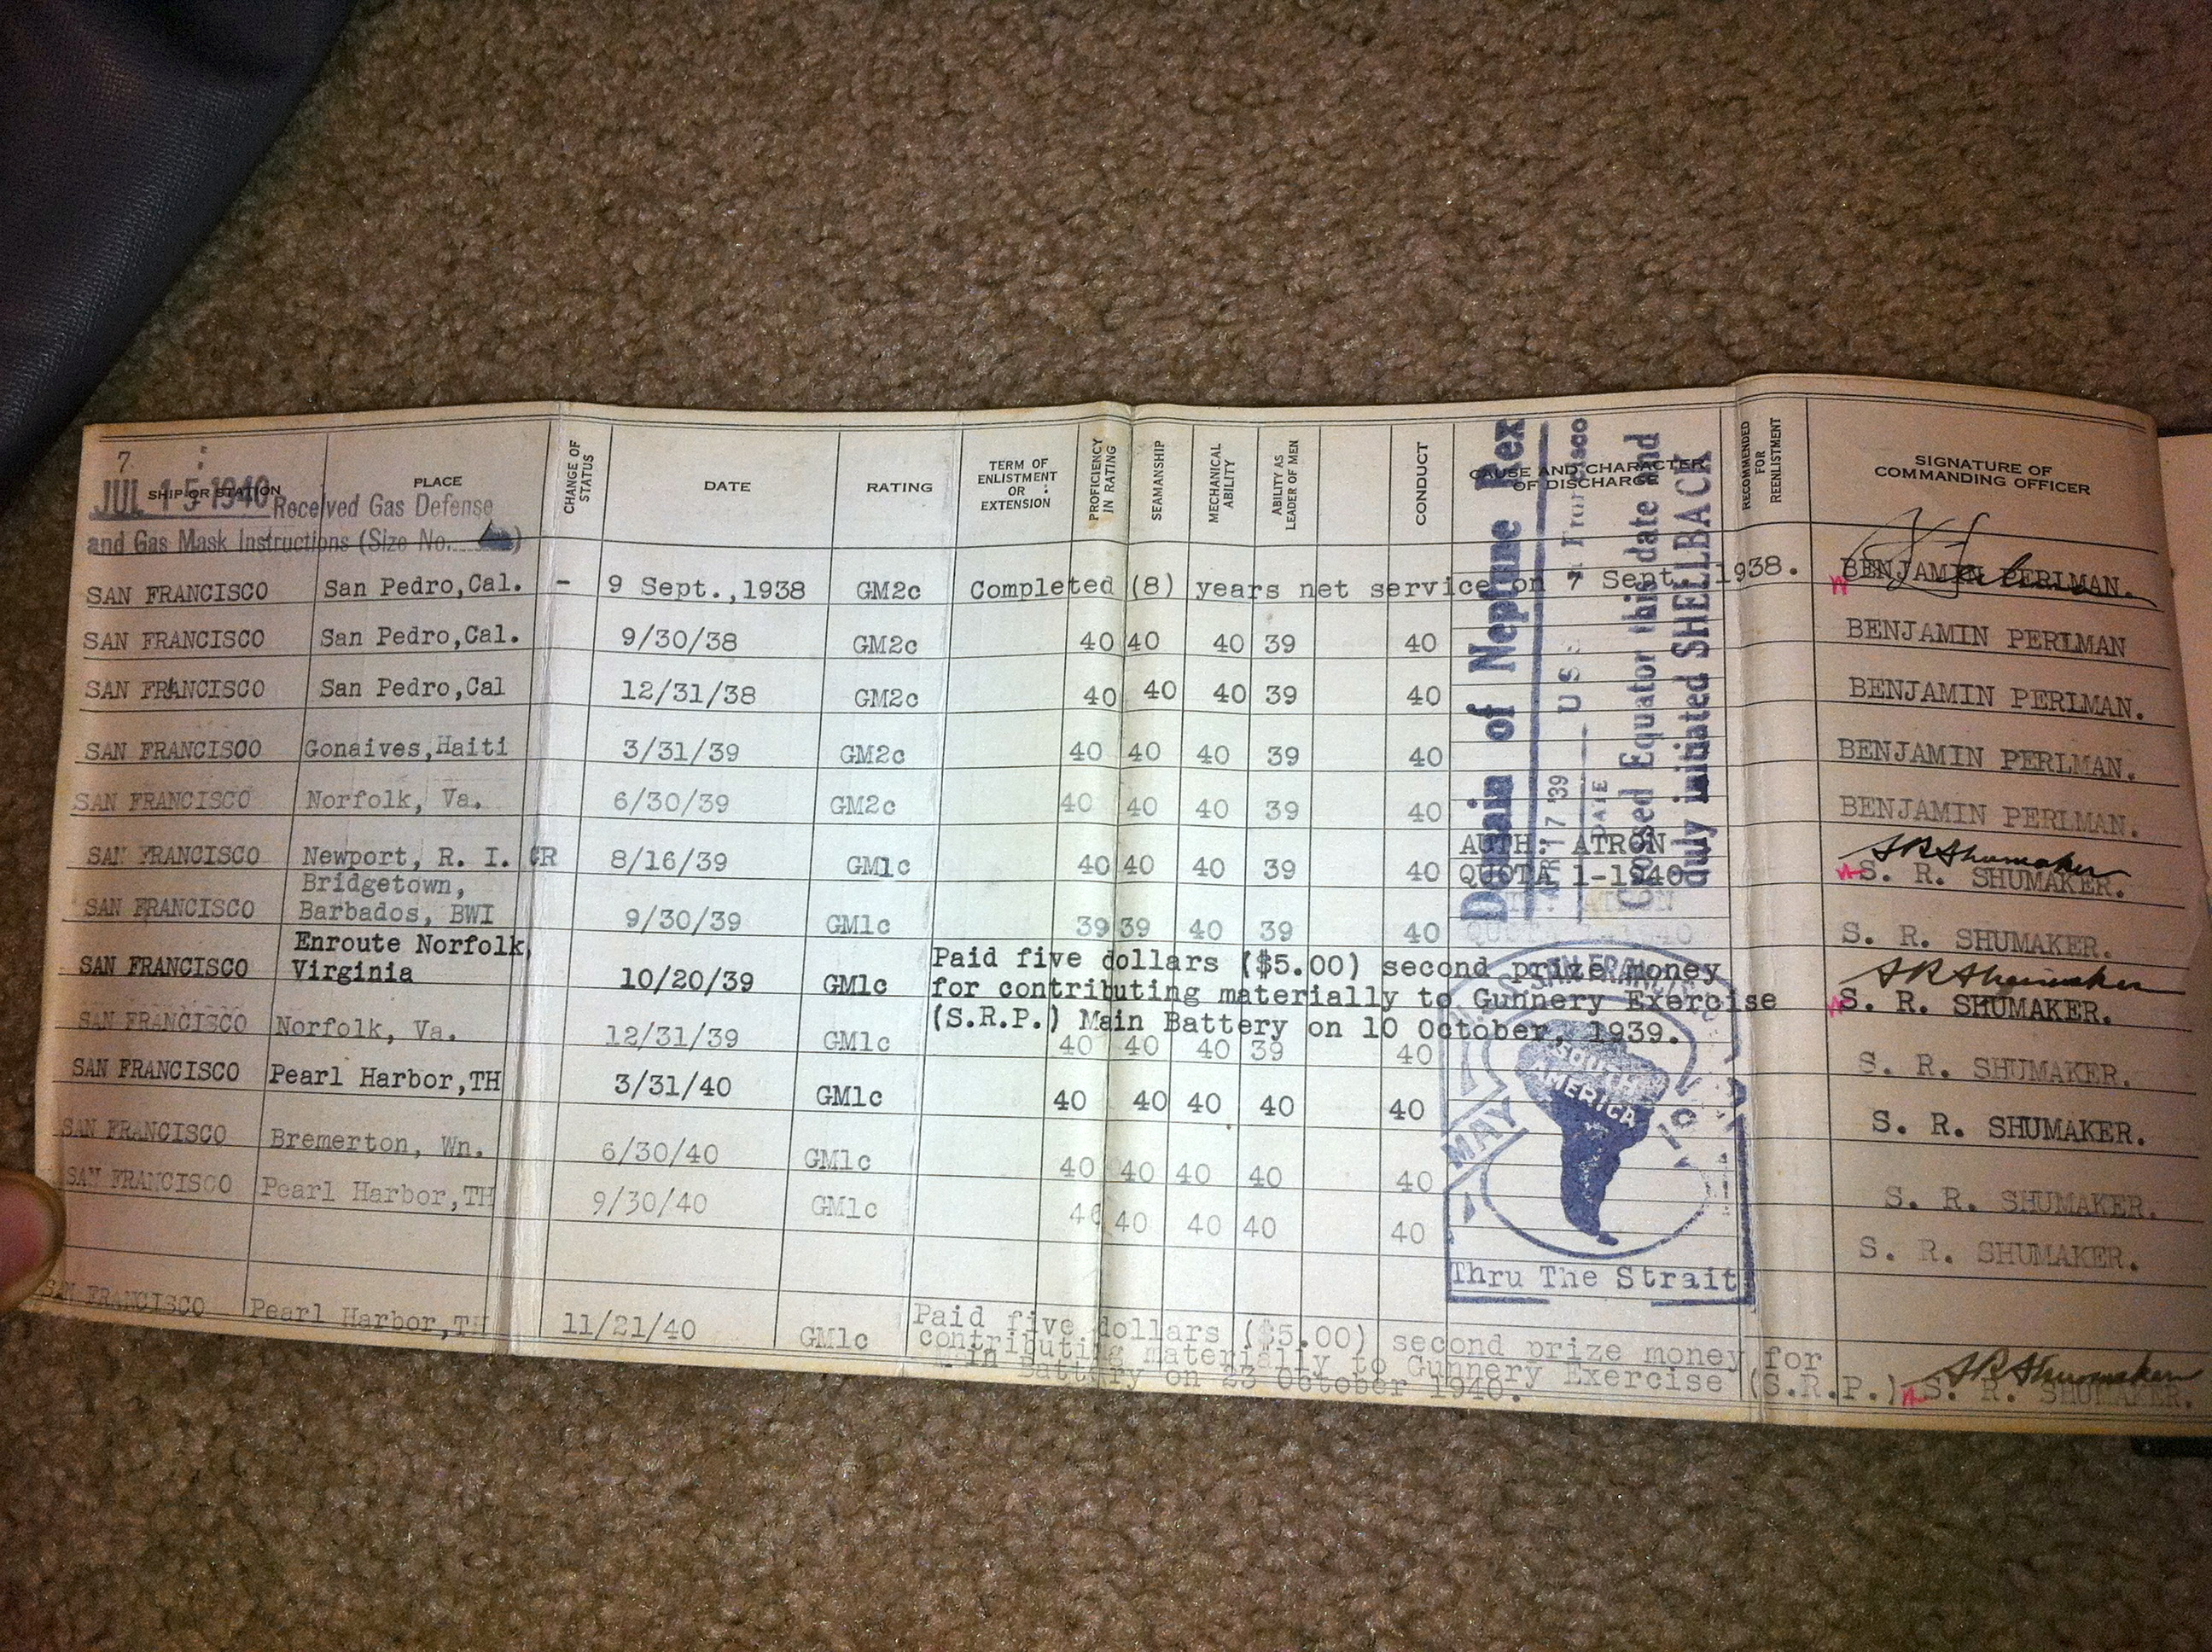 7
SHIP OR STATION
PLACE
CHANGE OF STATUS
DATE
RATING
TERM OF ENLISTMENT OR EXTENSION
PROFICIENCY IN RATING
SEAMANSHIP
MECHANICAL ABILITY
ABILITY AS LEADER OF MEN
CONDUCT
CAUSE AND CHARACTER OF DISCHARGE
RECOMMENDED FOR REENLISTMENT
SIGNATURE OF COMMANDING OFFICER
JUL 15 1940 Received Gas Defense
and Gas Mask Instructions (Size No. )
SAN FRANCISCO San Pedro,Cal. - 9 Sept.,1938 GM2c Completed (8) years net service on 7 Sept. 1938. BENJAMIN PERLMAN.
SAN FRANCISCO San Pedro,Cal. 9/30/38 GM2c 40 40 40 39 40 BENJAMIN PERLMAN
SAN FRANCISCO San Pedro,Cal 12/31/38 GM2c 40 40 40 39 40 BENJAMIN PERLMAN.
SAN FRANCISCO Gonaives,Haiti 3/31/39 GM2c 40 40 40 39 40 BENJAMIN PERLMAN.
SAN FRANCISCO Norfolk, Va. 6/30/39 GM2c 40 40 40 39 40 BENJAMIN PERLMAN.
SAN FRANCISCO Newport, R. I. CR 8/16/39 GM1c 40 40 40 39 40 AUTH: ATRON
QUOTA 1-1940 SRShumaker
S. R. SHUMAKER.
Bridgetown,
SAN FRANCISCO Barbados, BWI 9/30/39 GM1c 39 39 40 39 40 S. R. SHUMAKER.
Enroute Norfolk,
SAN FRANCISCO Virginia 10/20/39 GM1c Paid five dollars ($5.00) second prize money
for contributing materially to Gunnery Exercise
(S.R.P.) Main Battery on 10 October, 1939.
SRShumaker
S. R. SHUMAKER.
SAN FRANCISCO Norfolk, Va. 12/31/39 GM1c 40 40 40 39 40 S. R. SHUMAKER.
SAN FRANCISCO Pearl Harbor,TH 3/31/40 GM1c 40 40 40 40 40 S. R. SHUMAKER.
SAN FRANCISCO Bremerton, Wn. 6/30/40 GM1c 40 40 40 40 40 S. R. SHUMAKER.
SAN FRANCISCO Pearl Harbor,TH 9/30/40 GM1c 40 40 40 40 40 S. R. SHUMAKER.
SAN FRANCISCO Pearl Harbor,TH 11/21/40 GM1c Paid five dollars ($5.00) second prize money for
contributing materially to Gunnery Exercise (S.R.P.)
Battery on 23 October 1940.
SRShumaker
S. R. SHUMAKER.
Domain of Neptune Rex
17 '39 DATE U.S.S. San Francisco
Crossed Equator this date and
duly initiated SHELLBACK
U.S.S. SAN FRANCISCO
SOUTH
AMERICA
MAY
Thru The Strait